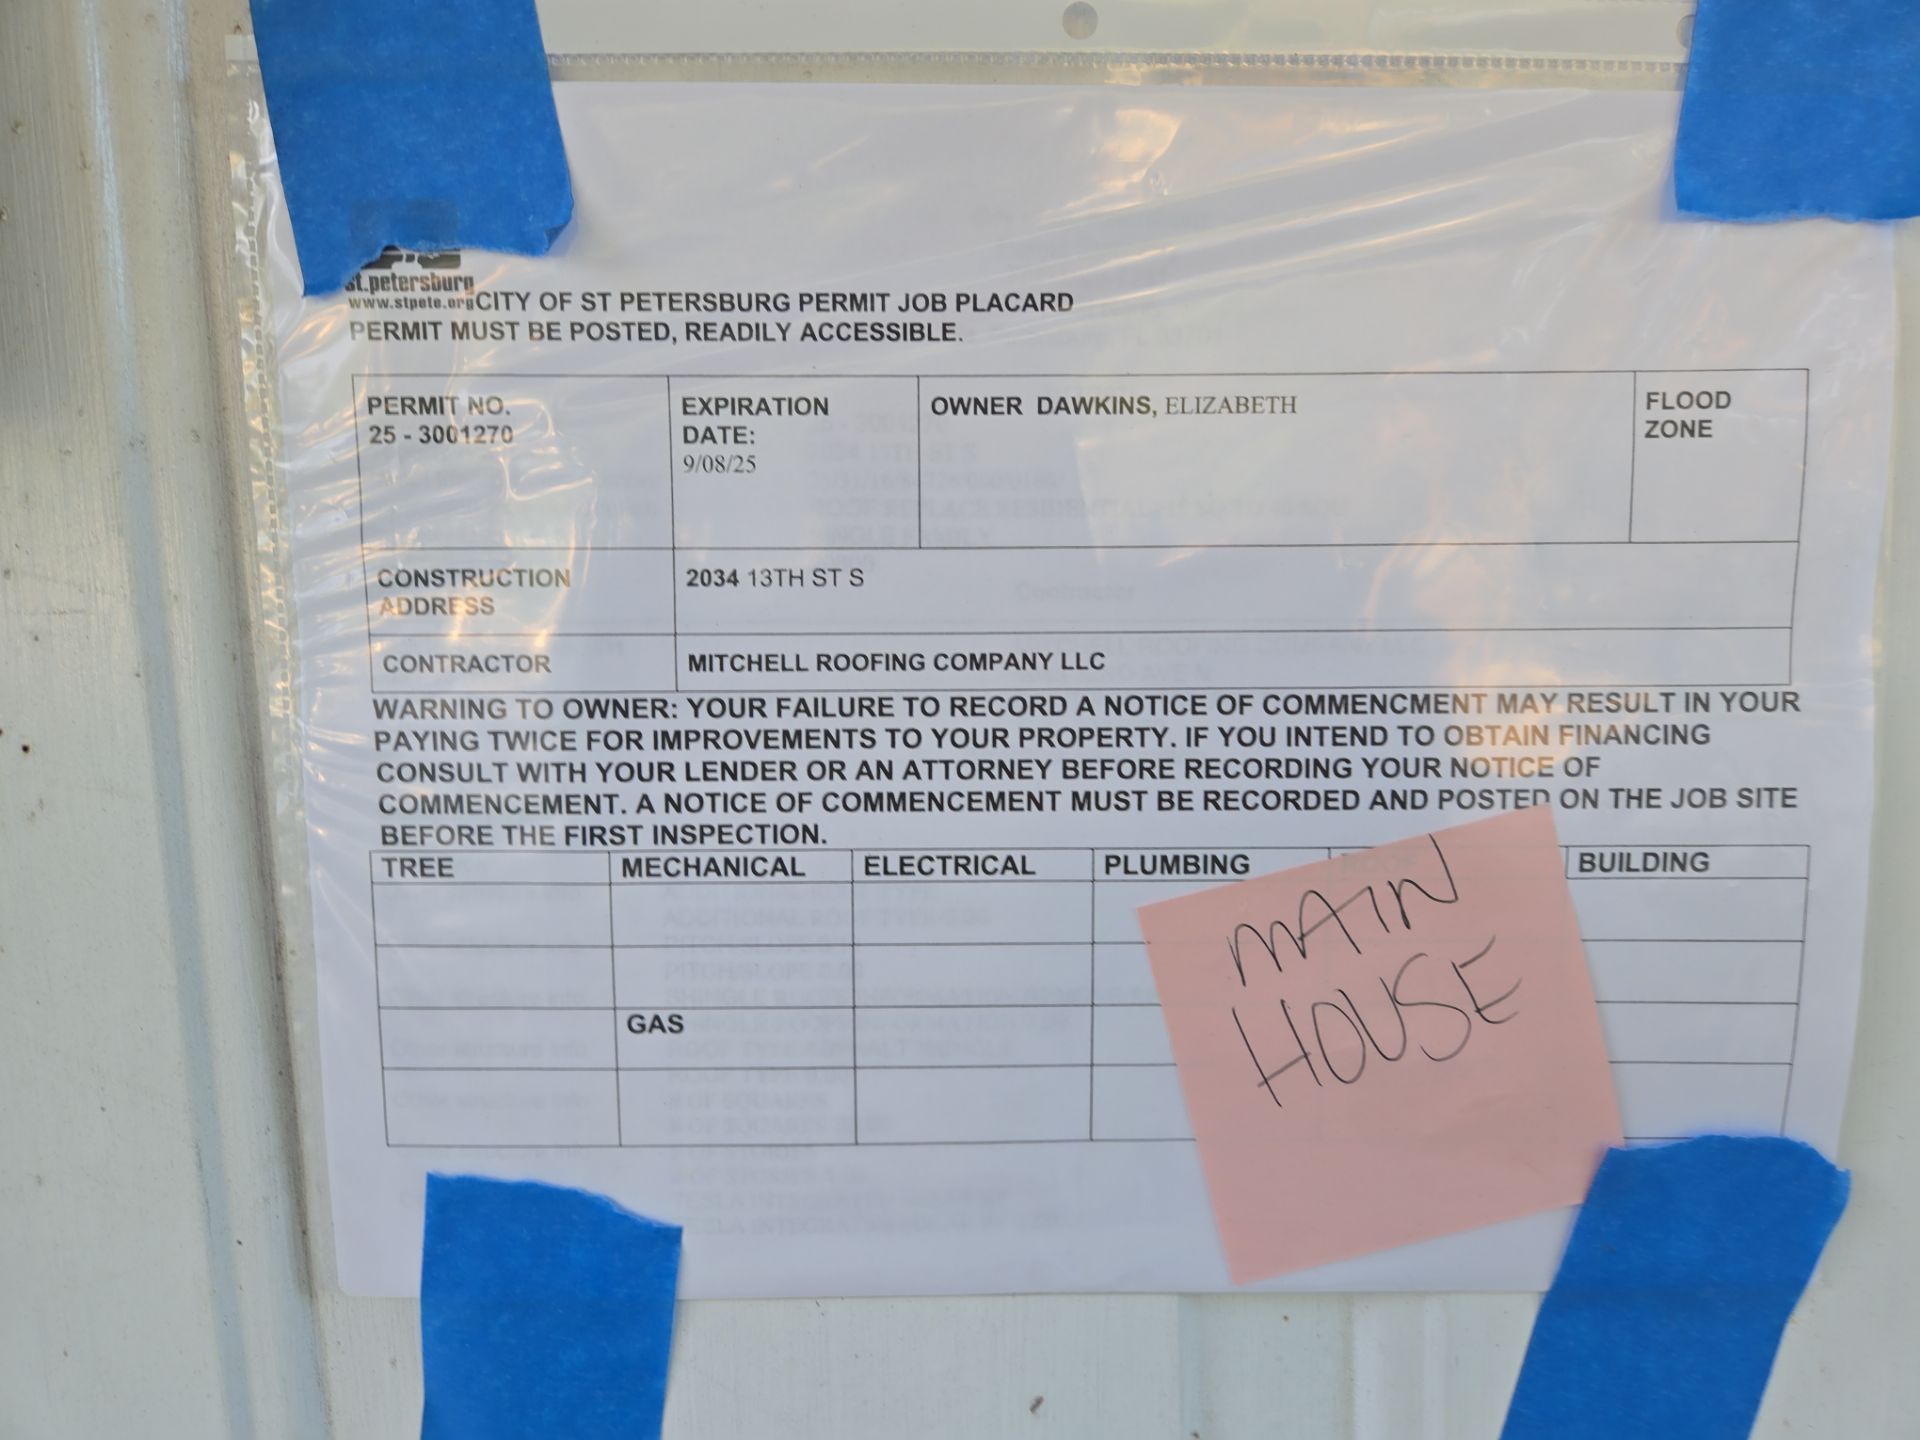 st.petersburg
www.stpete.org CITY OF ST PETERSBURG PERMIT JOB PLACARD
PERMIT MUST BE POSTED, READILY ACCESSIBLE.
PERMIT NO.
25 - 3001270
EXPIRATION
DATE:
9/08/25
OWNER DAWKINS, ELIZABETH
FLOOD
ZONE
CONSTRUCTION
ADDRESS
2034 13TH ST S
CONTRACTOR
MITCHELL ROOFING COMPANY LLC
WARNING TO OWNER: YOUR FAILURE TO RECORD A NOTICE OF COMMENCMENT MAY RESULT IN YOUR
PAYING TWICE FOR IMPROVEMENTS TO YOUR PROPERTY. IF YOU INTEND TO OBTAIN FINANCING
CONSULT WITH YOUR LENDER OR AN ATTORNEY BEFORE RECORDING YOUR NOTICE OF
COMMENCEMENT. A NOTICE OF COMMENCEMENT MUST BE RECORDED AND POSTED ON THE JOB SITE
BEFORE THE FIRST INSPECTION.
TREE MECHANICAL ELECTRICAL PLUMBING ROOF BUILDING
GAS
MAIN
HOUSE